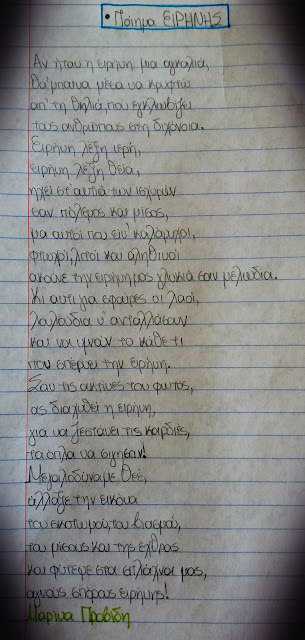 • Ποίημα ΕΙΡΗΝΗΣ
Αν ήταν η ειρήνη μια αγκαλιά,
θα 'μπαινα μέσα να κρυφτώ
απ' τη θηλιά, που εγκλωβίζει
τους ανθρώπους στη διχόνοια.
Ειρήνη λέξη ιερή,
ειρήνη λέξη θεία,
ηχεί στ' αυτιά των ισχυρών
σαν πόλεμος και μίσος,
μα αυτοί που ειν' καλόψυχοι,
φτωχοί, λιτοί και αληθινοί
ακούνε την ειρήνη μας γλυκιά σαν μελωδία.
Κι αντί για σφαίρες οι λαοί,
λουλούδια ν' ανταλλάσουν
και να υμνούν το κάθε τι
που σπέρνει την ειρήνη.
Σαν τις ακτίνες του φωτός,
ας διαχυθεί η ειρήνη,
για να ζεστάνει τις καρδιές,
τα όπλα να σιγήσαν!
Μεγαλοδύναμε Θεέ,
άλλαξε την εικόνα
του σκοτωμού, του βιασμού,
του μίσους και της έχθρας
και φύτεψε στα σπλάχνα μας,
αγνούς σπόρους ειρήνης!
Μαρίνα Προβίδη